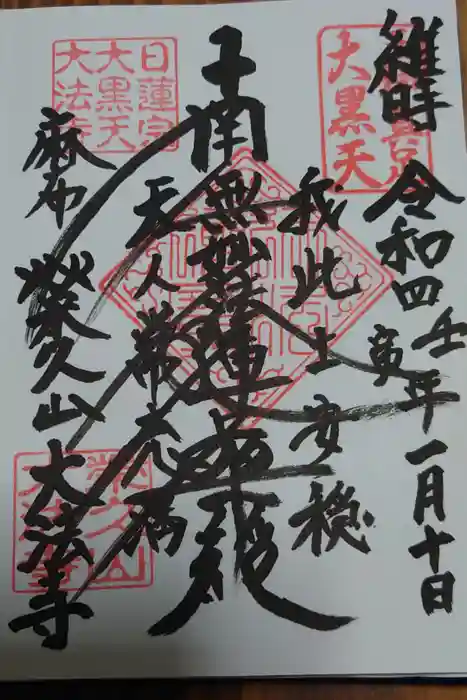 維時 令和四壬寅年一月十日
我此土安穏
南無妙法蓮華経
天人常充満
麻布 榮久山 大法寺
大黒天
日蓮宗
大黒天
大法寺